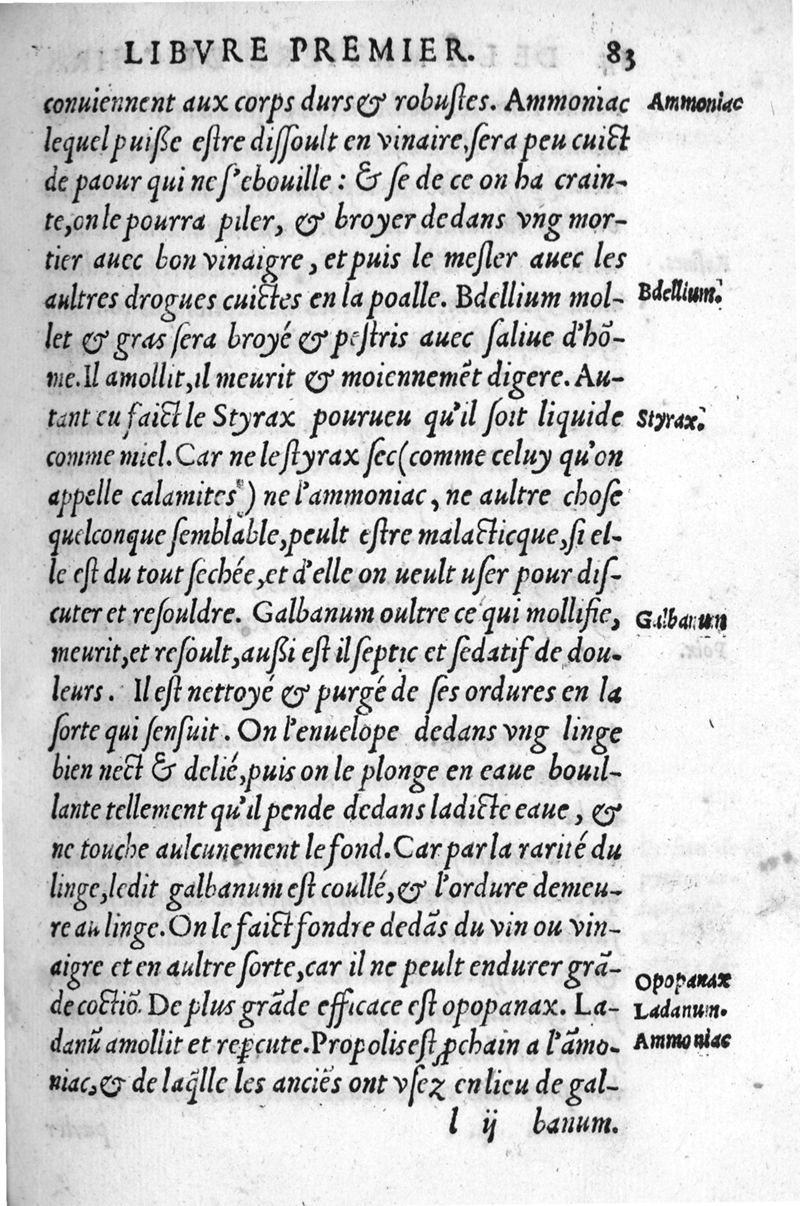 LIBVRE PREMIER. 83
conuiennent aux corps durs & robuſtes. Ammoniac
Ammoniac
lequel puiſſe eſtre diſſoult en vinaire, ſera peu cuict
de paour qui ne ſ'ebouille : & ſe de ce on ha crain-
te, on le pourra piler, & broyer dedans vng mor-
tier auec bon vinaigre, et puis le meſler auec les
aultres drogues cuictes en la poalle. Bdellium mol-
Bdellium.
let & gras ſera broyé & peſtris auec ſaliue d'hõ-
me. Il amollit, il meurit & moiennemẽt digere. Au-
tant eu faict le Styrax pourueu qu'il ſoit liquide
Styrax.
comme miel. Car ne le ſtyrax ſec (comme celuy qu'on
appelle calamites) ne l'ammoniac, ne aultre choſe
quelconque ſemblable, peult eſtre malacticque, ſi el-
le eſt du tout ſechée, et d'elle on ueult uſer pour diſ-
cuter et reſouldre. Galbanum oultre ce qui mollifie,
Galbanum
meurit, et reſoult, auſſi eſt il ſeptic et ſedatif de dou-
leurs. Il eſt nettoyé & purgé de ſes ordures en la
ſorte qui ſenſuit. On l'enuelope dedans vng linge
bien nect & delié, puis on le plonge en eaue bouil-
lante tellement qu'il pende dedans ladicte eaue, &
ne touche aulcunement le fond. Car par la rarité du
linge, ledit galbanum eſt coullé, & l'ordure demeu-
re au linge. On le faict fondre dedãs du vin ou vin-
aigre et en aultre ſorte, car il ne peult endurer grã-
de coctiõ. De plus grãde efficace eſt opopanax. La-
Opopanax
Ladanum.
danũ amollit et reꝑcute. Propolis eſt ꝓchain a l'ãmo-
Ammoniac
niac, & de laq̃lle les anciẽs ont vſez en lieu de gal-
l ij banum.